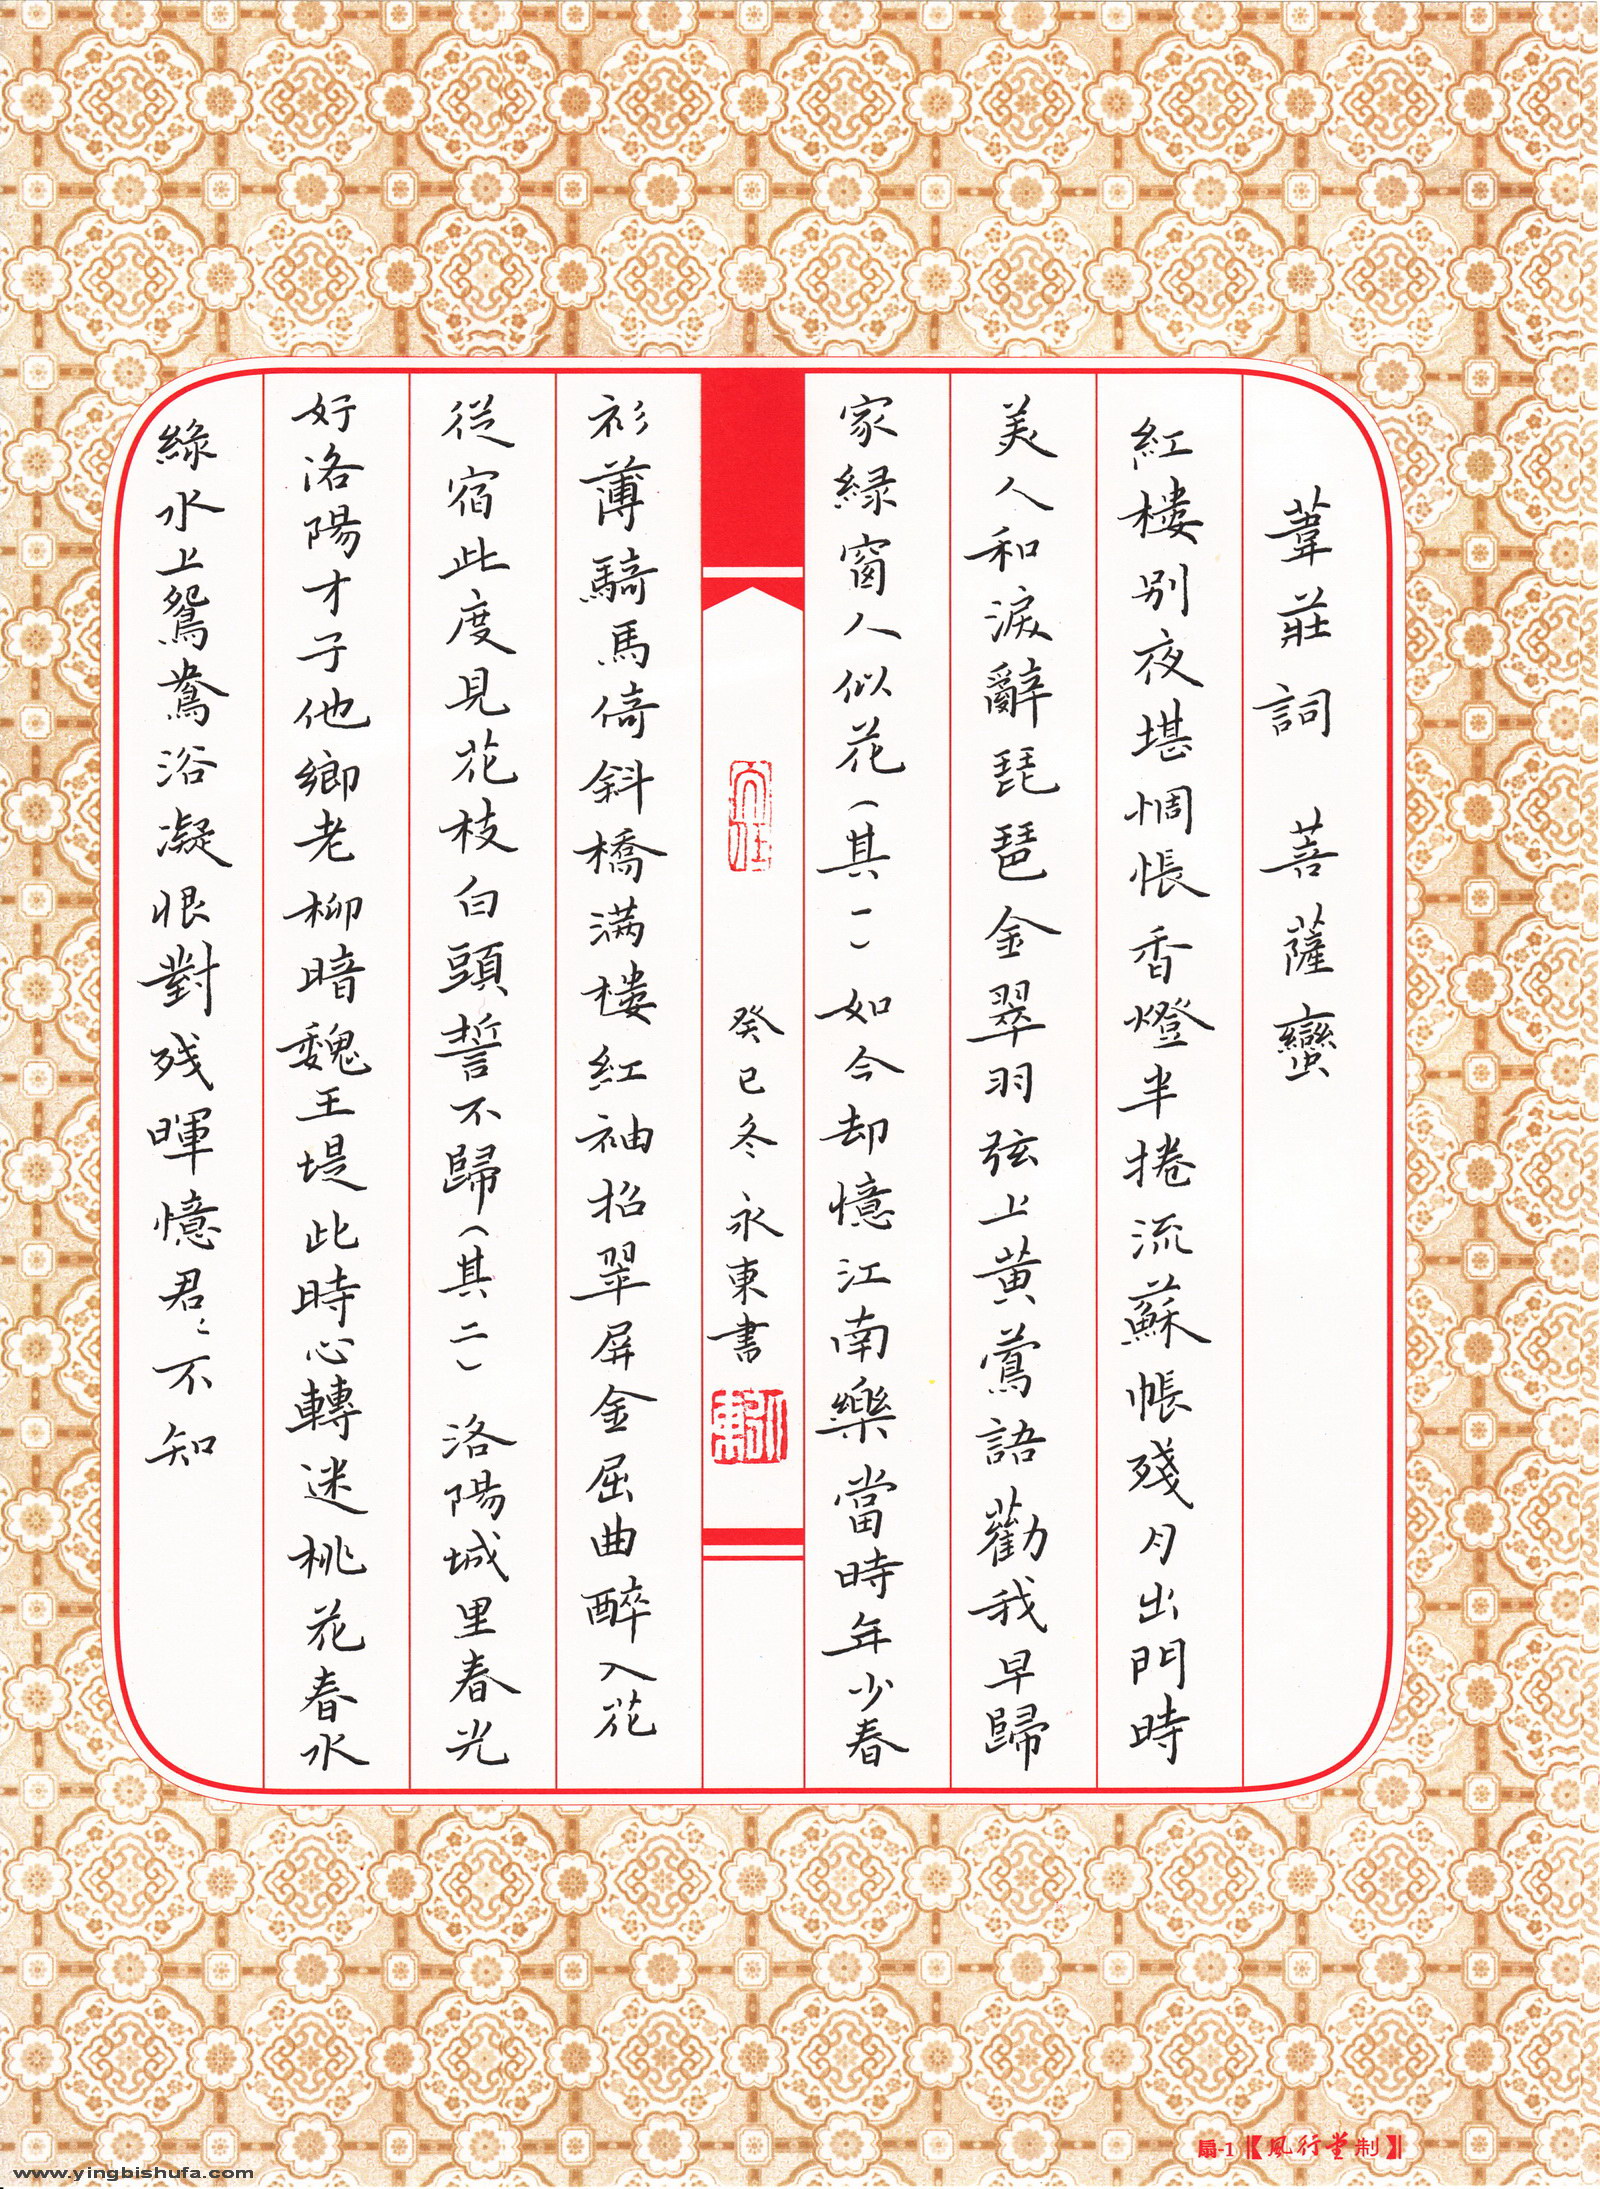 葦莊詞　菩薩蠻
紅樓別夜堪惆悵香燈半捲流蘇帳殘月出門時
美人和淚辭琵琶金翠羽弦上黃鶯語勸我早歸
家緑窗人似花（其一）如今却憶江南樂當時年少春
癸巳冬　永東書
永東
衫薄騎馬倚斜橋滿樓紅袖招翠屏金屈曲醉入花
從宿此度見花枝白頭誓不歸（其二）洛陽城里春光
好洛陽才子他鄉老柳暗魏王堤此時心轉迷桃花春水
綠水上鴛鴦浴凝恨對残暉憶君〻不知
扇-1【風行堂制】
www.yingbishufa.com